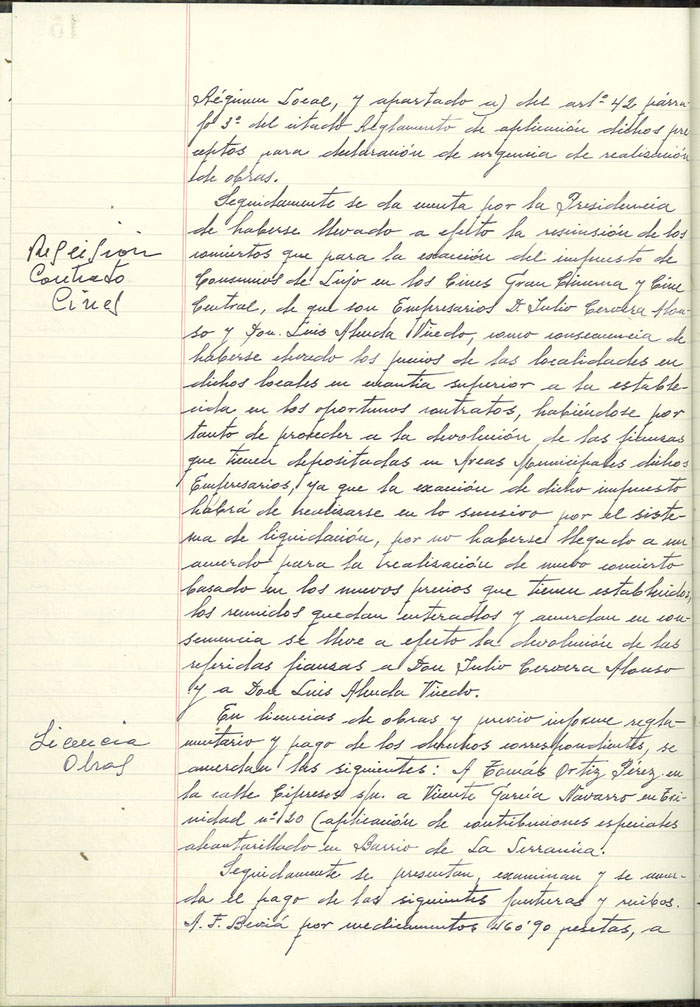 Régimen Local, y apartado a) del artº 42 párra-
fo 3º del citado Reglamento de aplicación dichos pre
ceptos para declaración de urgencia de realización
de obras.
Seguidamente se da cuenta por la Presidencia
de haberse llevado a efecto la rescinsión de los
Rescision
conciertos que para la exacción del impuesto de
Contrato
Consumos de Lujo en los Cines Gran Cinema y Cine
Cines
Central, de que son Empresarios D. Julio Cervera Alon-
so y Don. Luis Vicedo, como consecuencia de
haberse elevado los precios de las localidades en
dichos locales en cuantía superior a la estable-
cida en los oportunos contratos, habiéndose por
tanto de proceder a la devolución de las fianzas
que tienen depositadas en Arcas Municipales dichos
Empresarios, ya que la exacción de dicho impuesto
habrá de realizarse en lo sucesivo por el siste-
ma de liquidación, por no haberse llegado a un
acuerdo para la realización de nuevo concierto
basado en los nuevos precios que tienen establecidos,
los reunidos quedan enterados y acuerdan en con-
secuencia se lleve a efecto la devolución de las
referidas fianzas a Don Julio Cervera Alonso
y a Don Luis Vicedo.
En licencias de obras y previo informe regla-
Licencia
mentario y pago de los derechos correspondientes, se
Obras
acuerdan las siguientes: A Tomás Ortiz Pérez en
la calle Cipreses s/n. a Vicente García Navarro en Tri-
nidad nº 120 (aplicación de contribuciones especiales
alcantarillado en Barrio de La Serranica.
Seguidamente se presentan, examinan y se acuer-
da el pago de las siguientes facturas y recibos.
A. F. Beviá por medicamentos 460'90 pesetas, a